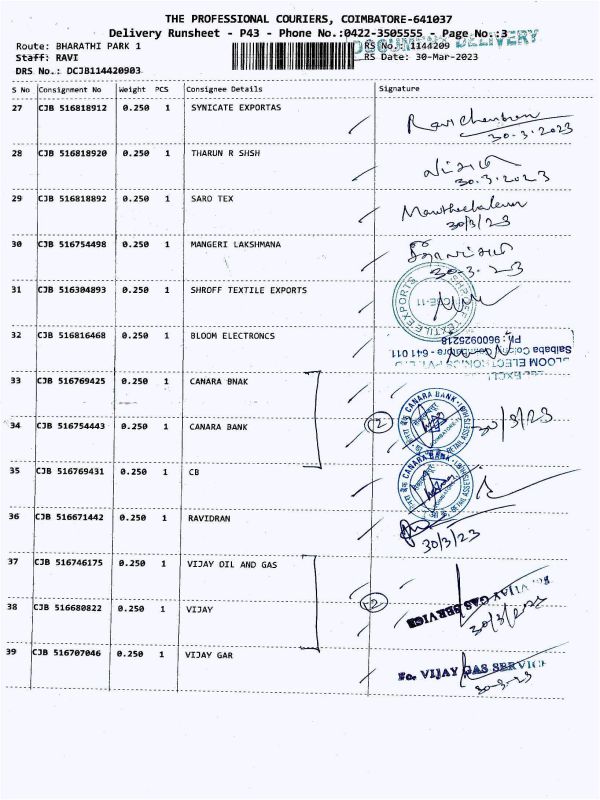 THE PROFESSIONAL COURIERS, COIMBATORE-641037
Delivery Runsheet - P43 - Phone No.:0422-3505555 - Page No.:3
DOCUMENT DELIVERY
Route: BHARATHI PARK 1 RS No.: 1144209
Staff: RAVI RS Date: 30-Mar-2023
DRS No.: DCJB114420903
S No Consignment No Weight PCS Consignee Details Signature
27 CJB 516818912 0.250 1 SYNICATE EXPORTAS
30.3.2023
28 CJB 516818920 0.250 1 THARUN R SHSH
30.3.2023
29 CJB 516818892 0.250 1 SARO TEX
30/3/23
30 CJB 516754498 0.250 1 MANGERI LAKSHMANA
30-3-23
31 CJB 516304893 0.250 1 SHROFF TEXTILE EXPORTS
SHROFF TEXTILE EXPORTS
CBE-11
32 CJB 516816468 0.250 1 BLOOM ELECTRONCS
Ph: 9600925218
Saibaba Colony, Coimbatore - 641 011
BLOOM ELECTRONICS PVT. LTD
33 CJB 516769425 0.250 1 CANARA BNAK
CANARA BANK
34 CJB 516754443 0.250 1 CANARA BANK 2 30/3/23
COIMBATORE
CANARA BANK
35 CJB 516769431 0.250 1 CB
36 CJB 516671442 0.250 1 RAVIDRAN
30/3/23
37 CJB 516746175 1 0.250 VIJAY OIL AND GAS
38 CJB 516680822 0.250 1 VIJAY 2
For VIJAY GAS SERVICE
39 CJB 516707046 0.250 1 VIJAY GAR
For VIJAY GAS SERVICE
30-3-23